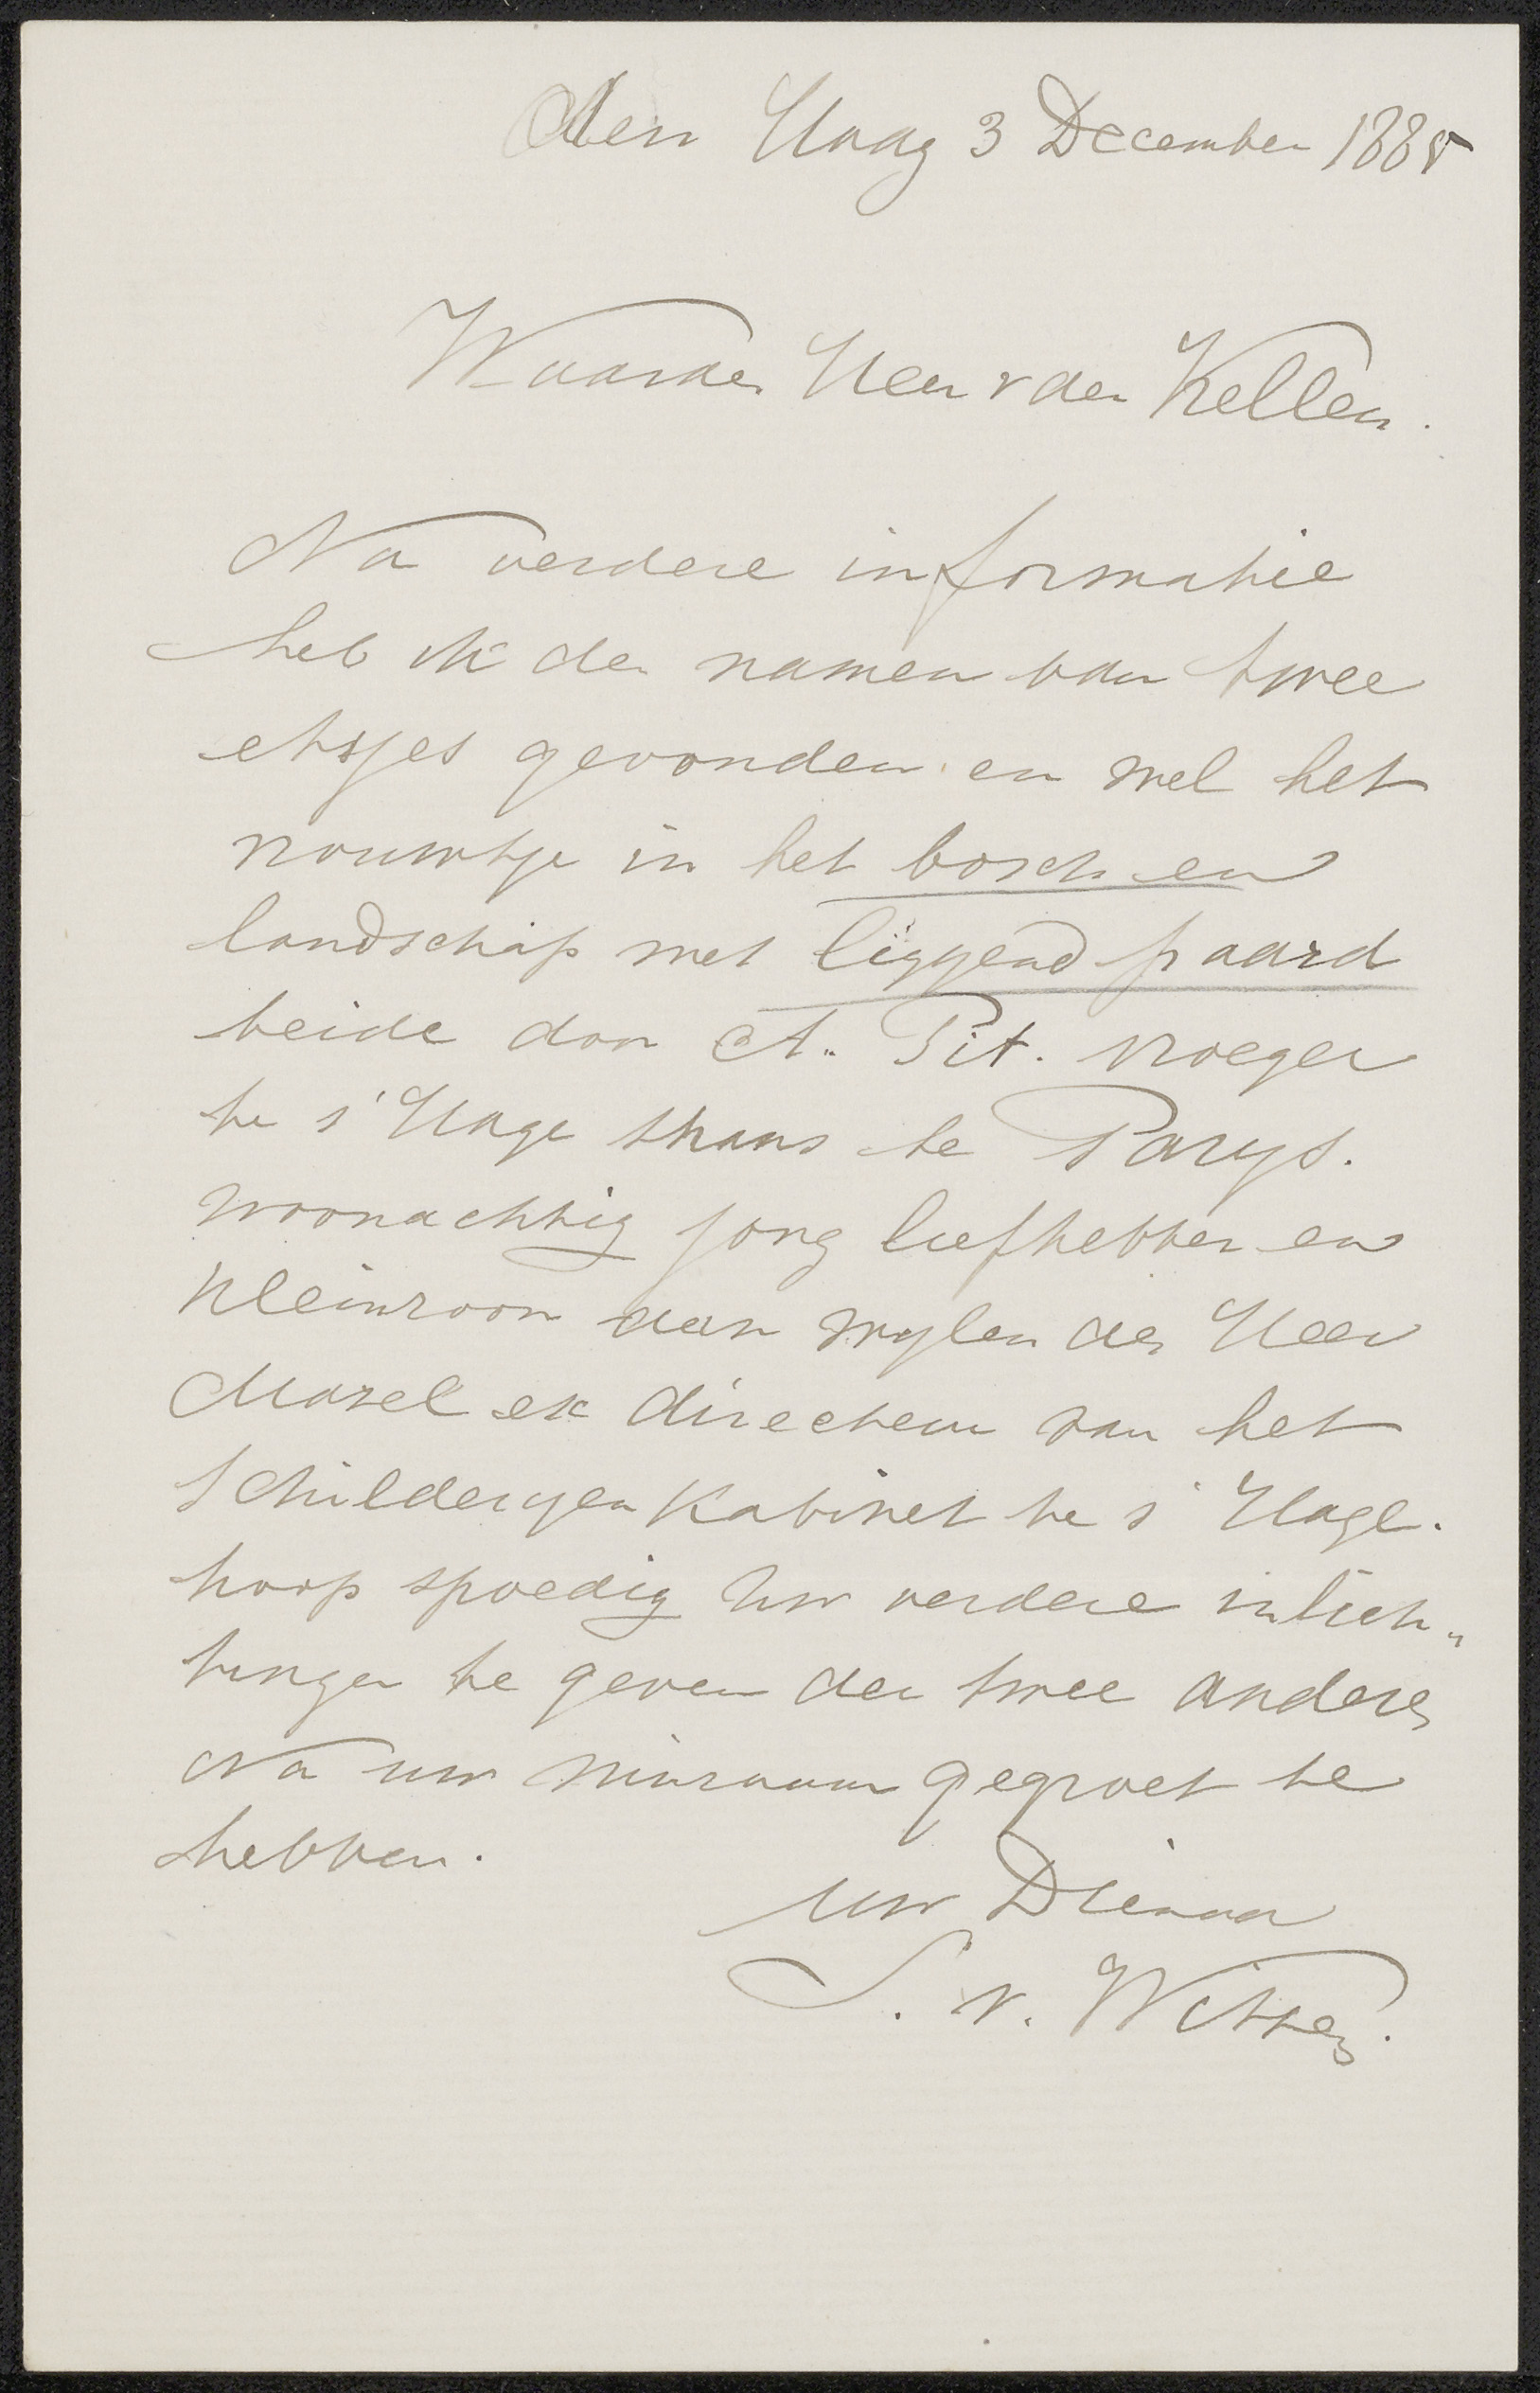 den Haag 3 December 1885
Waarde Heer v der Kellen.
Na verdere informatie
heb ik de namen van twee
etsjes gevonden en wel het
vrouwtje in het bosch en
landschap met liggend paard
beide door A. Pit. vroeger
te s'Hage thans te Parys.
woonachtig jong liefhebber en
kleinzoon van wylen de Heer
Mazel ex directeur van het
schilderyen kabinet te s'Hage.
hoop spoedig uw verdere inlich„
tingen te geven der twee andere,
Na uw minzaam gegroet te
hebben.
uw Dienaar
S. v. Witsen.